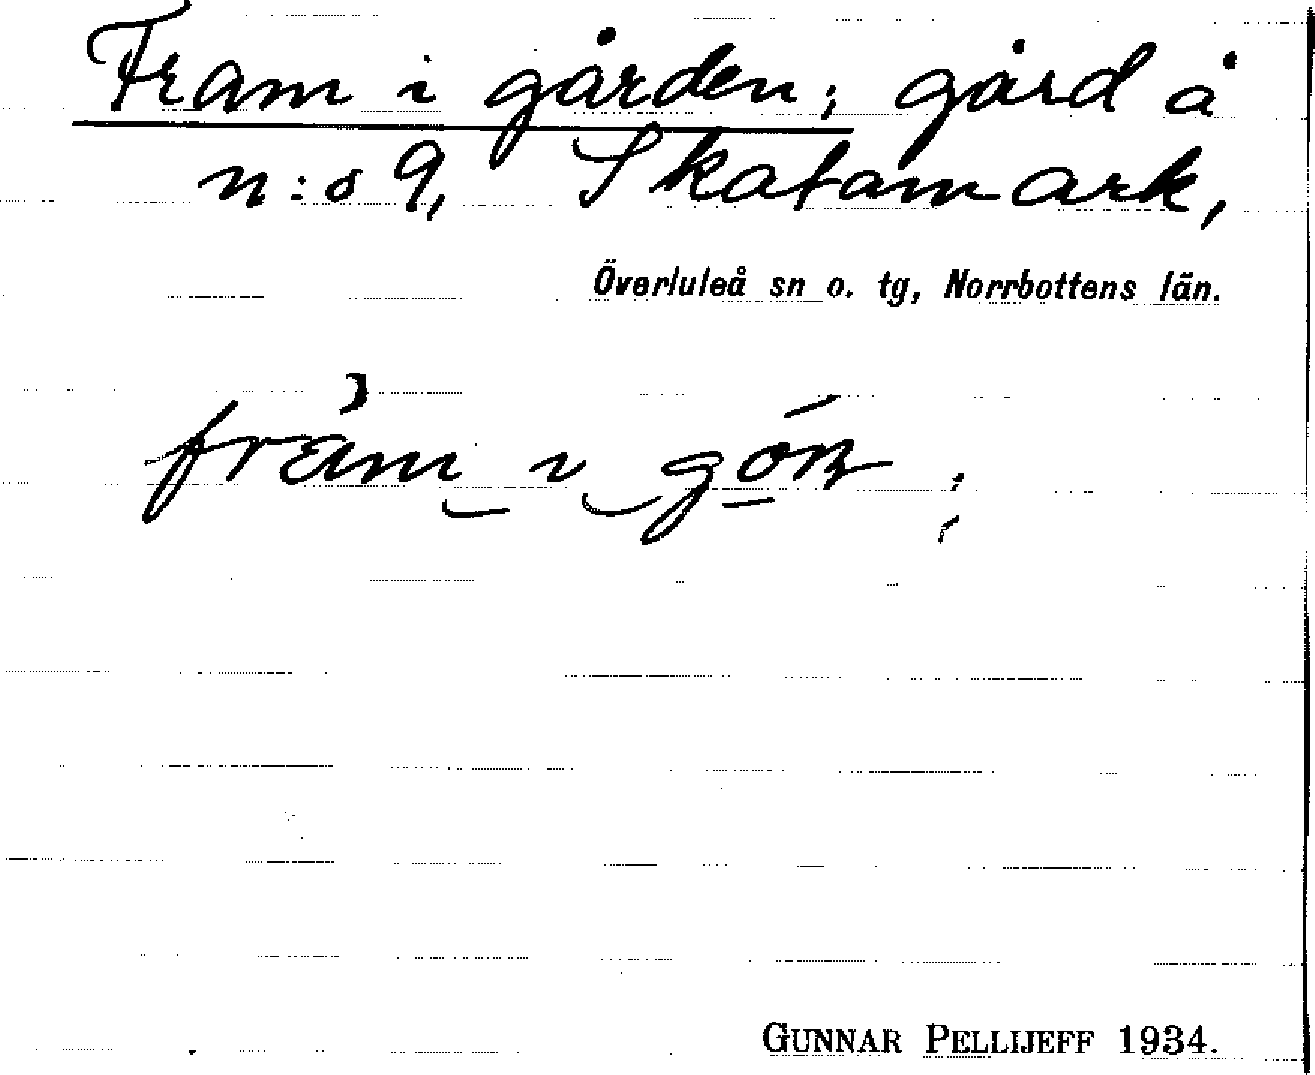 Fram i gården; gård å
n:o 9, Skatamark,
Överluleå sn o. tg, Norrbottens län.
främ i
GUNNAR PELLIJEFF 1934.